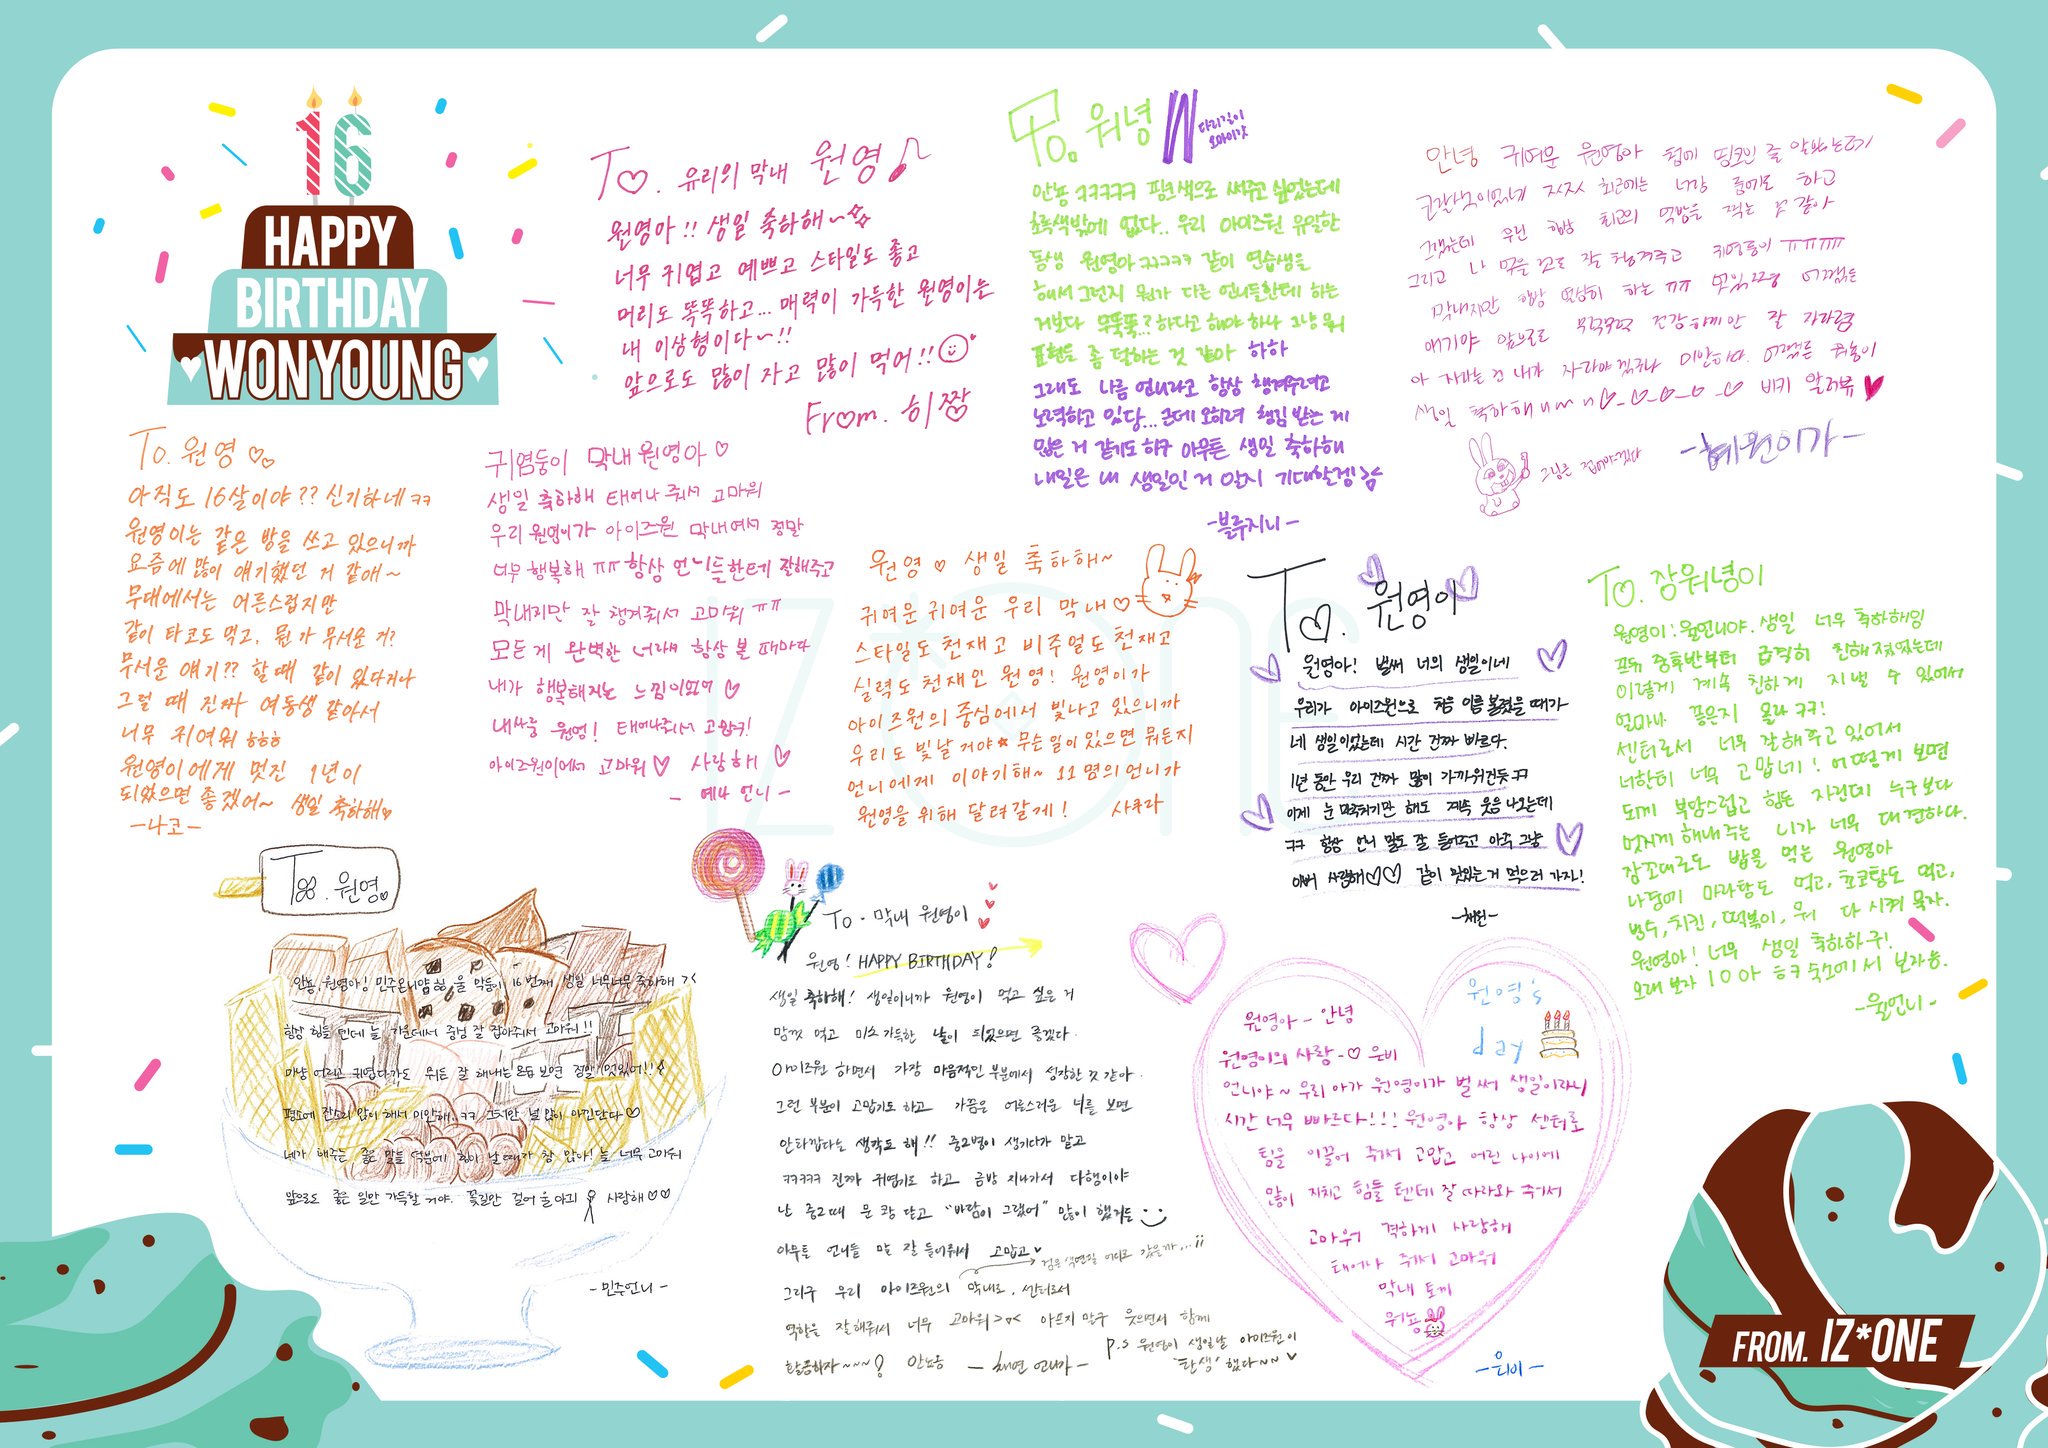 16
HAPPY
BIRTHDAY
WONYOUNG
To. 우리의 막내 원영
원영아!! 생일 축하해~
너무 귀엽고 예쁘고 스타일도 좋고
머리도 똑똑하고... 매력이 가득한 원영이는
내 이상형이다~!!
앞으로도 많이 자고 많이 먹어!!
From. 히짱
To. 워녕
다리길이
오마이갓
안뇽 ㅋㅋㅋㅋㅋ 핑크색으로 써주고 싶었는데
초록색밖에 없다.. 우리 아이즈원 유일한
동생 원영아ㅋㅋㅋㅋㅋ 같이 연습생을
해서 그런지 뭔가 다른 언니들한테 하는
거보다 무뚝뚝..? 하다고 해야 하나 그냥 뭐
표현을 좀 덜하는 것 같아 하하
그래도 나름 언니라고 항상 챙겨주려고
노력하고 있다... 근데 오히려 챙김 받는 게
많은 거 같기도 하구 아무튼 생일 축하해
내일은 내 생일인 거 알지 기대할겡
-블루지니-
안녕 귀여운 원영아 첨에 핑크인 줄 알았는데
최근에는 너랑
그랬는데 우린 항상 최고의 먹방을 찍는 것 같아
그리고 나 먹을 것도 잘 챙겨주고 귀염둥이 ㅠㅠㅠㅠ
막내지만 항상 열심히 하는 ㅠㅠ
애기야 앞으로 무럭무럭 건강하게만 잘 자라렴
아 자라는 건 내가 자라야 미안하다.
생일 축하해 비키 알러뷰
-혜원이가-
To. 원영
아직도 16살이야?? 신기하네ㅋㅋ
원영이는 같은 방을 쓰고 있으니까
요즘에 많이 얘기했던 거 같애~
무대에서는 어른스럽지만
같이 타코도 먹고, 뭔가 무서운 거?
무서운 얘기?? 할 때 같이 있다거나
그럴 때 진짜 여동생 같아서
너무 귀여워 ㅎㅎㅎ
원영이에게 멋진 1년이
되었으면 좋겠어~ 생일 축하해
-나코-
귀염둥이 막내 원영아♡
생일 축하해 태어나 줘서 고마워
우리 원영이가 아이즈원 막내여서 정말
너무 행복해 ㅠㅠ 항상 언니들한테 잘해주고
막내지만 잘 챙겨줘서 고마워 ㅠㅠ
모든 게 완벽한 너라서 항상 볼 때마다
내가 행복해지는 느낌이였어♡
내사랑 원영! 태어나줘서 고맙구!
아이즈원이여서 고마워♡ 사랑해♡
- 예나 언니 -
원영♡생일 축하해~
귀여운 귀여운 우리 막내♡
스타일도 천재고 비주얼도 천재고
실력도 천재인 원영! 원영이가
아이즈원의 중심에서 빛나고 있으니까
우리도 빛날 거야★ 무슨 일이 있으면 뭐든지
언니에게 이야기해~ 11명의 언니가
원영을 위해 달려갈게! 사쿠라
To. 원영이
원영아! 벌써 너의 생일이네
우리가 아이즈원으로 처음 이름 불렸을 때가
네 생일이었는데 시간 진짜 빠르다.
1년 동안 우리 진짜 많이 가까워진듯ㅋㅋ
이제 눈 마주치기만 해도 계속 웃음 나오는데
ㅋㅋ 항상 언니 말도 잘 들어주고 아주 그냥
이뻐 사랑해♡♡ 같이 맛있는 거 먹으러 가자!
-채원-
To. 장워녕이
원영이! 율언니야. 생일 너무 축하해잉
프듀 중후반부터 급격히 친해졌었는데
이렇게 계속 친하게 지낼 수 있어서
얼마나 좋은지 몰라ㅋㅋ!
센터로서 너무 잘해주고 있어서
너한테 너무 고맙네! 어떻게 보면
되게 부담스럽고 힘든 자린데 누구보다
멋지게 해내주는 니가 너무 대견하다.
잠꼬대로도 밥을 먹는 원영아
나중에 마라탕도 먹고, 초코탕도 먹고,
빙수, 치킨, 떡볶이, 뭐 다 시켜 묵자.
원영아! 너무 생일 축하하구!
오래 보자 숙소에서 보자용.
-율언니-
To. 원영
안뇽, 원영아! 민주온니얌 울 악동이 16번째 생일 너무너무 축하해 ><
항상 힘들 텐데 늘 가운데서 중심 잘 잡아줘서 고마워!!
마냥 어리고 귀엽다가도 뭐든 잘 해내는 모습 보면 정말 멋있어!!
평소에 잔소리 많이 해서 미안해.ㅋㅋ 그치만 널 많이 아낀단다♡
네가 해주는 좋은 말들 덕분에 힘이 날 때가 참 많아! 늘 너무 고마워
앞으로도 좋은 일만 가득할 거야. 꽃길만 걸어 울 아긔 사랑해♡♡
-민주언니-
To. 막내 원영이
원영! HAPPY BIRTHDAY!
생일 축하해! 생일이니까 원영이 먹고 싶은 거
맘껏 먹고 미소 가득한 날이 되었으면 좋겠다.
아이즈원 하면서 가장 마음적인 부분에서 성장한 것 같아.
그런 부분이 고맙기도 하고 가끔은 어른스러운 너를 보면
안타깝다는 생각도 해!! 중2병이 생기다가 말고
ㅋㅋㅋㅋㅋ 진짜 귀엽기도 하고 금방 지나가서 다행이야
난 중2때 문 쾅 닫고 "바람이 그랬어" 많이 했거든
아무튼 언니들 말 잘 들어줘서 고맙고♥
검은 색연필 어디로 갔을까...;;
그리구 우리 아이즈원의 막내로, 센터로서
역할을 잘해줘서 너무 고마워>.< 아프지 말구 웃으면서 함께
활동하자~~~! 안뇽
- 채연 언니가 -
P.S 원영이 생일날 아이즈원이
'탄생'했다~~♥
원영's
day
원영아~ 안녕
원영이의 사랑~♡ 은비
언니야~ 우리 아가 원영이가 벌써 생일이라니
시간 너무 빠르다!!! 원영아 항상 센터로
팀을 이끌어 주어서 고맙고 어린 나이에
많이 지치고 힘들 텐데 잘 따라와 주어서
고마워 격하게 사랑해
태어나 주어서 고마워
막내 토끼
워뇽
-은비-
FROM. IZ*ONE